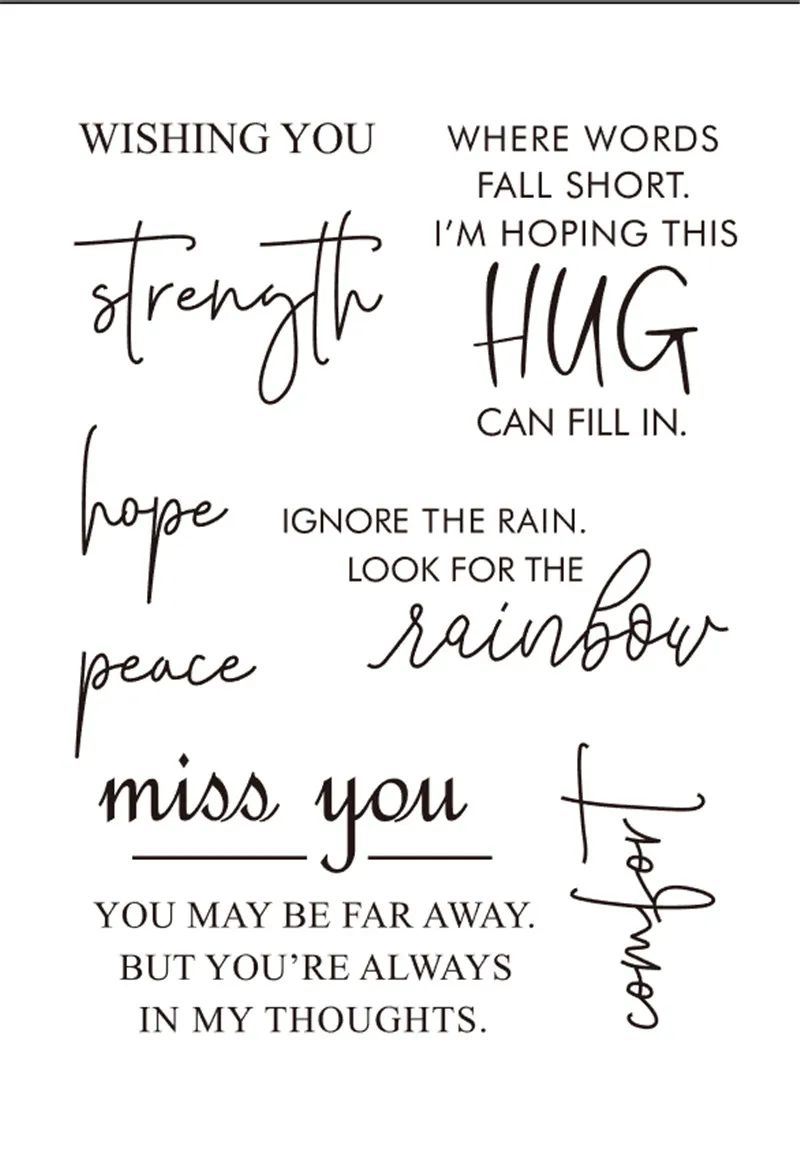 WISHING YOU
strength
WHERE WORDS
FALL SHORT.
I'M HOPING THIS
HUG
CAN FILL IN.
hope
IGNORE THE RAIN.
LOOK FOR THE
rainbow
peace
miss you
YOU MAY BE FAR AWAY.
BUT YOU'RE ALWAYS
IN MY THOUGHTS.
comfort